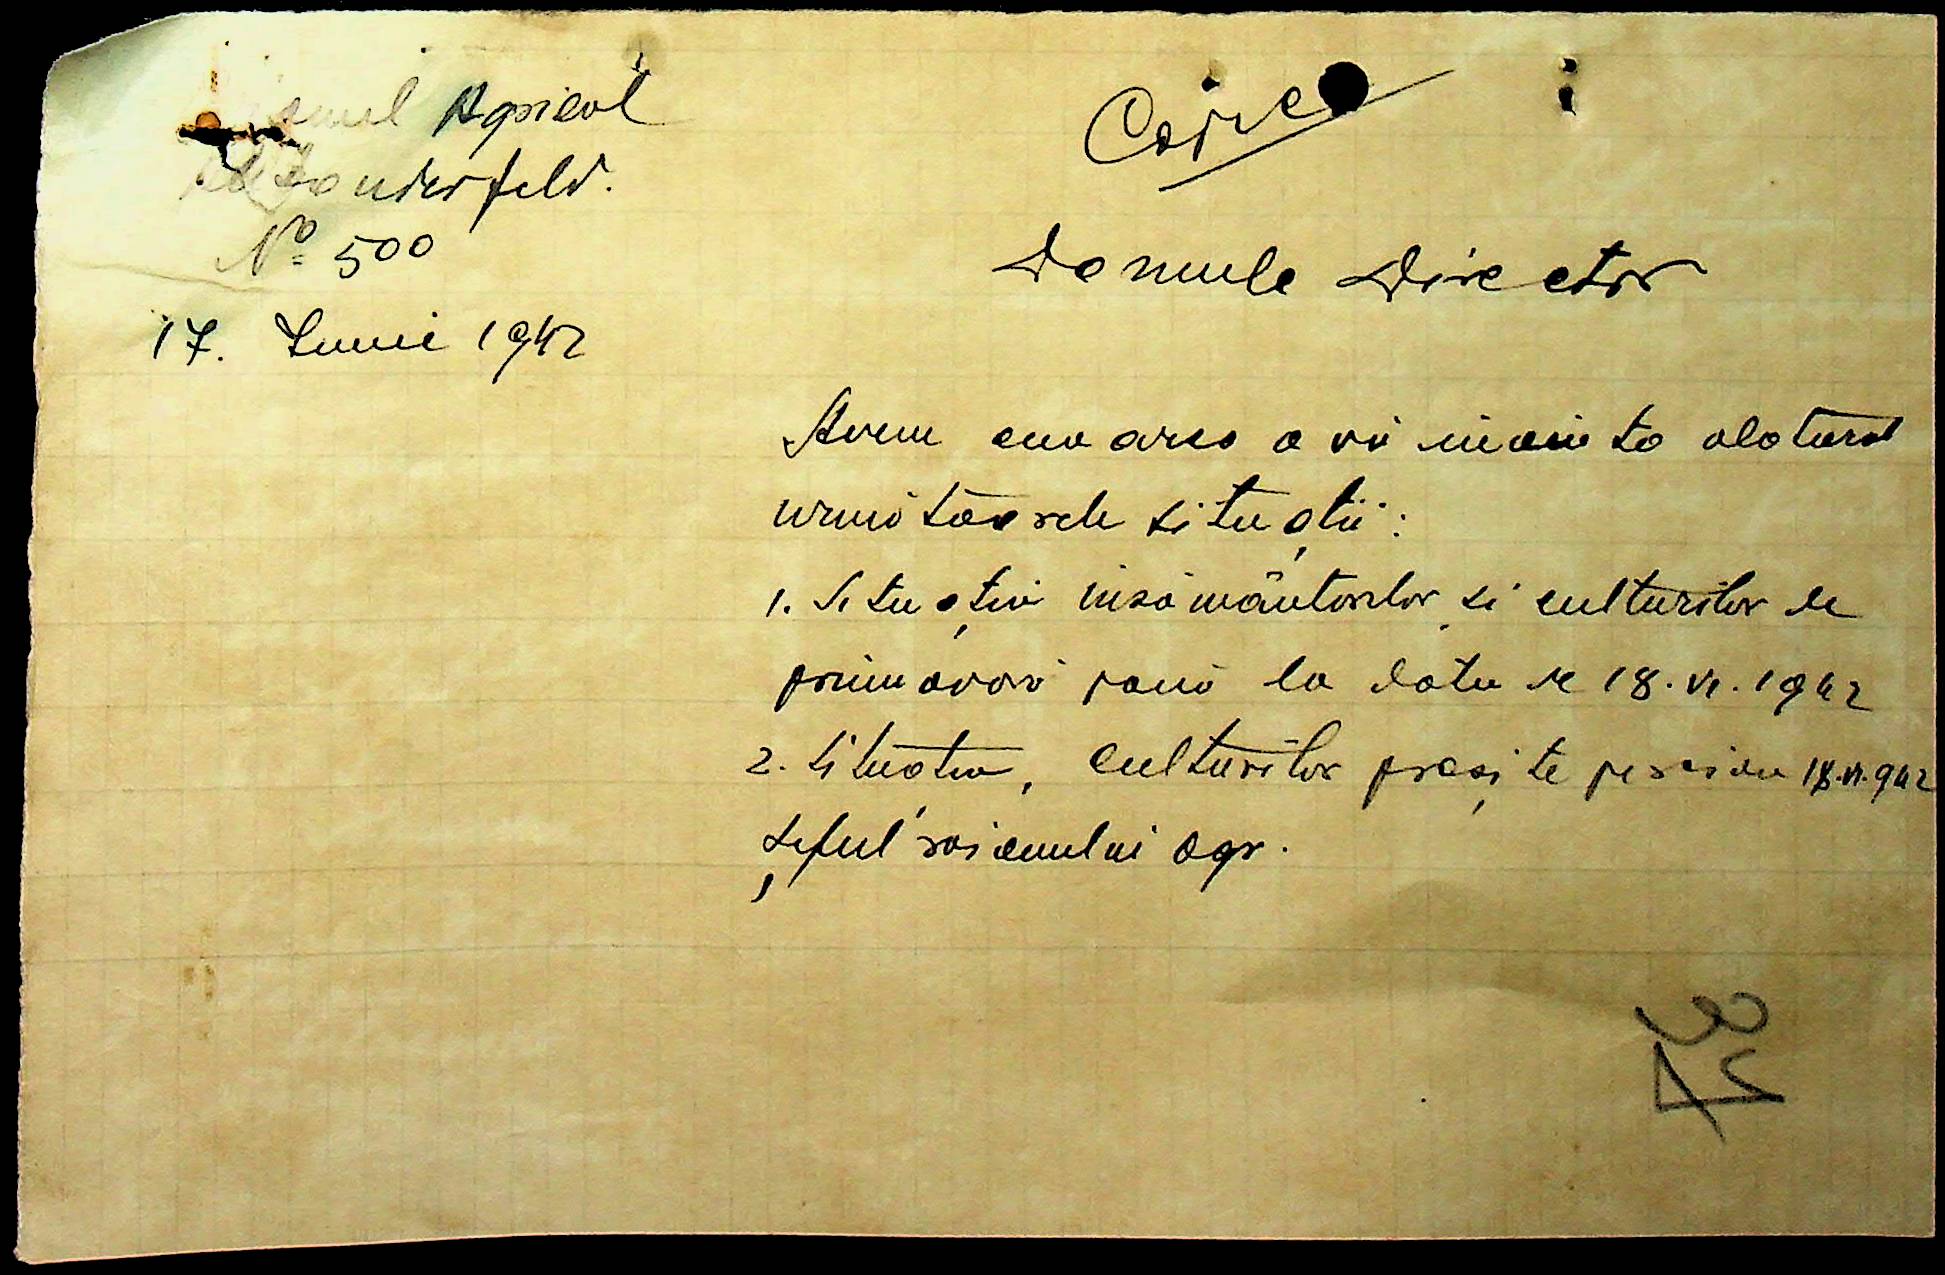 Agricol
Alexanderfeld.
Nº 500
17. Iunie 1942
Copie
Domnule Director
Avem onoarea a vă înainta alăturat
următoarele situații:
1. Situația însămânțărilor și culturilor de
primăvară până la data de 18.VI.1942
2. Situația, culturilor prășite pe ziua 18.VI.942
Șeful raionului agr.